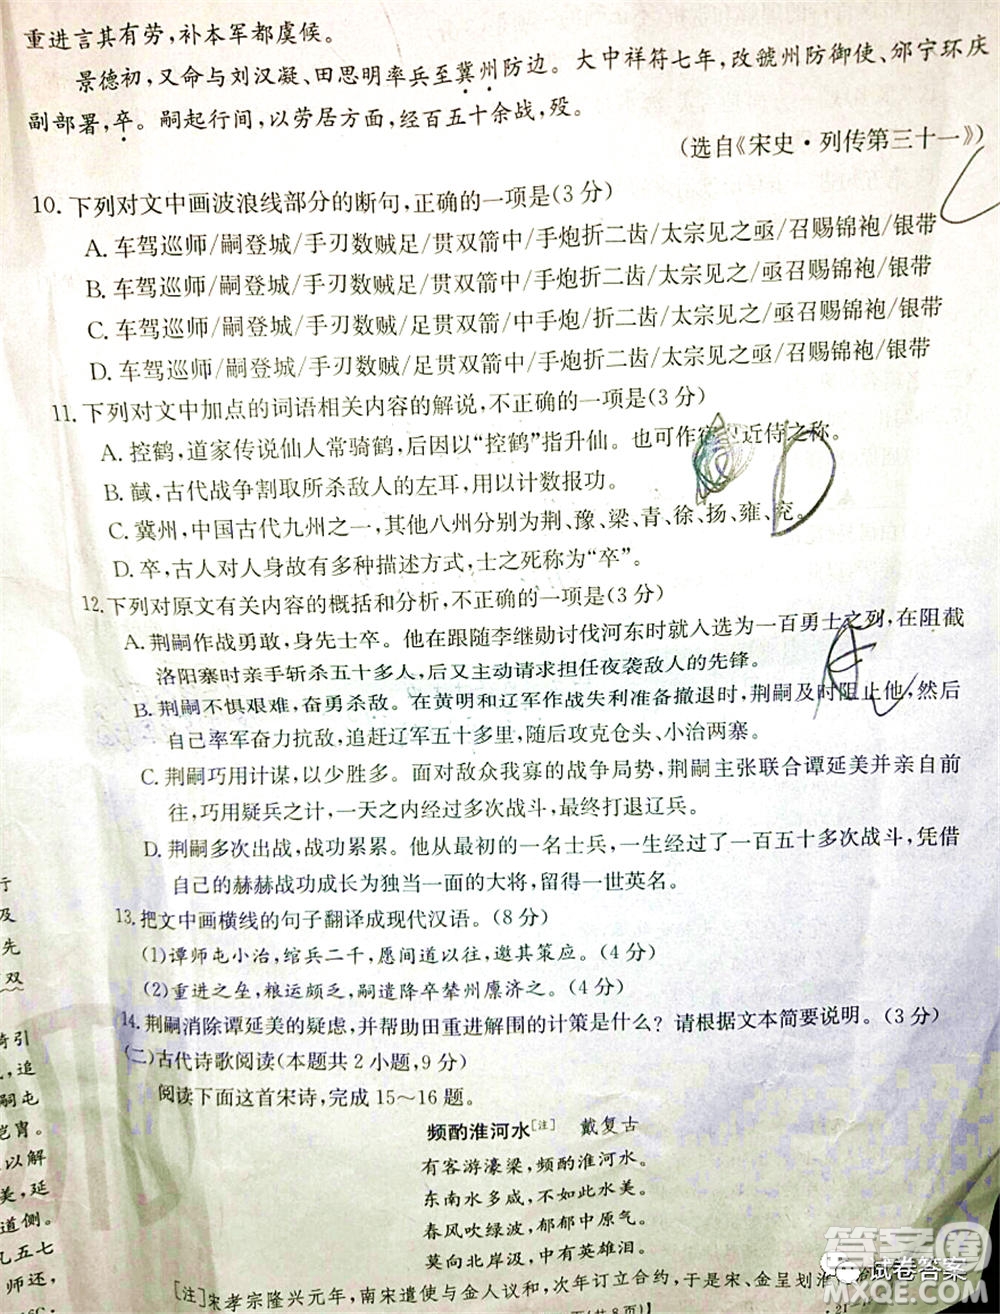 重进言其有劳，补本军都虞候。
景德初，又命与刘汉凝、田思明率兵至冀州防边。大中祥符七年，改虢州防御使、邠宁环庆
副部署，卒。嗣起行间，以劳居方面，经百五十余战，殁。
（选自《宋史·列传第三十一》）
10. 下列对文中画波浪线部分的断句，正确的一项是（3分）
A. 车驾巡师/嗣登城/手刃数贼足/贯双箭中/手炮折二齿/太宗见之亟/召赐锦袍/银带
B. 车驾巡师/嗣登城/手刃数贼足/贯双箭中/手炮折二齿/太宗见之/亟召赐锦袍/银带
C. 车驾巡师/嗣登城/手刃数贼/足贯双箭/中手炮/折二齿/太宗见之/亟召赐锦袍/银带
D. 车驾巡师/嗣登城/手刃数贼/足贯双箭/中手炮折二齿/太宗见之亟/召赐锦袍/银带
11. 下列对文中加点的词语相关内容的解说，不正确的一项是（3分）
A. 控鹤，道家传说仙人常骑鹤，后因以“控鹤”指升仙。也可作宿 近侍之称。
B. 馘，古代战争割取所杀敌人的左耳，用以计数报功。
C. 冀州，中国古代九州之一，其他八州分别为荆、豫、梁、青、徐、扬、雍、兖。
D. 卒，古人对人身故有多种描述方式，士之死称为“卒”。
12. 下列对原文有关内容的概括和分析，不正确的一项是（3分）
A. 荆嗣作战勇敢，身先士卒。他在跟随李继勋讨伐河东时就入选为一百勇士之列，在阻截
洛阳寨时亲手斩杀五十多人，后又主动请求担任夜袭敌人的先锋。
B. 荆嗣不惧艰难，奋勇杀敌。在黄明和辽军作战失利准备撤退时，荆嗣及时阻止他，然后
自己率军奋力抗敌，追赶辽军五十多里，随后攻克仓头、小治两寨。
C. 荆嗣巧用计谋，以少胜多。面对敌众我寡的战争局势，荆嗣主张联合谭延美并亲自前
往，巧用疑兵之计，一天之内经过多次战斗，最终击退辽兵。
D. 荆嗣多次出战，战功累累。他从最初的一名士兵，参与了一百五十多次战斗，凭借
自己的赫赫战功成长为独当一面的大将，留得一世英名。
13. 把文中画横线的句子翻译成现代汉语。（8分）
(1)谭师屯小治，绾兵二千，愿间道以往，邀其策应。（4分）
(2)重进之垒，粮运颇乏，嗣遣降卒辇州廪济之。（4分）
14. 荆嗣消除谭延美的疑虑，并帮助田重进解围的计策是什么？请根据文本简要说明。（3分）
(二)古代诗歌阅读（本题共2小题，9分）
阅读下面这首宋诗，完成15～16题。
频酌淮河水[注] 戴复古
有客游濠梁，频酌淮河水。
东南水多咸，不如此水美。
春风吹绿波，郁郁中原气。
莫向北岸汲，中有英雄泪。
[注]宋孝宗隆兴元年，南宋遣使与金人议和，次年订立合约，于是宋、金呈划淮
页(共8页)】
行
及
先
双
奇引
，追
嗣屯
岂胄
以解
美，延
道侧。
孔五七
师还，
6C·
答案圈
MXQE.COM
试卷答案